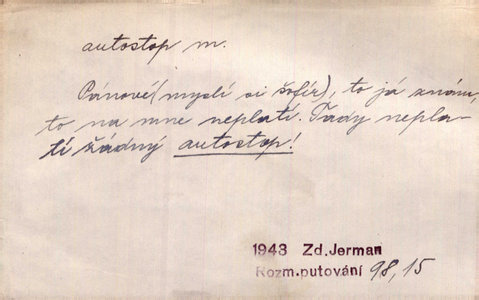 autostop m.
Pánové (myslí si šofér), to já znám,
to na mne neplatí. Tady nepla-
tí žádný autostop!
1943 Zd. Jerman
Rozm. putování 98, 15